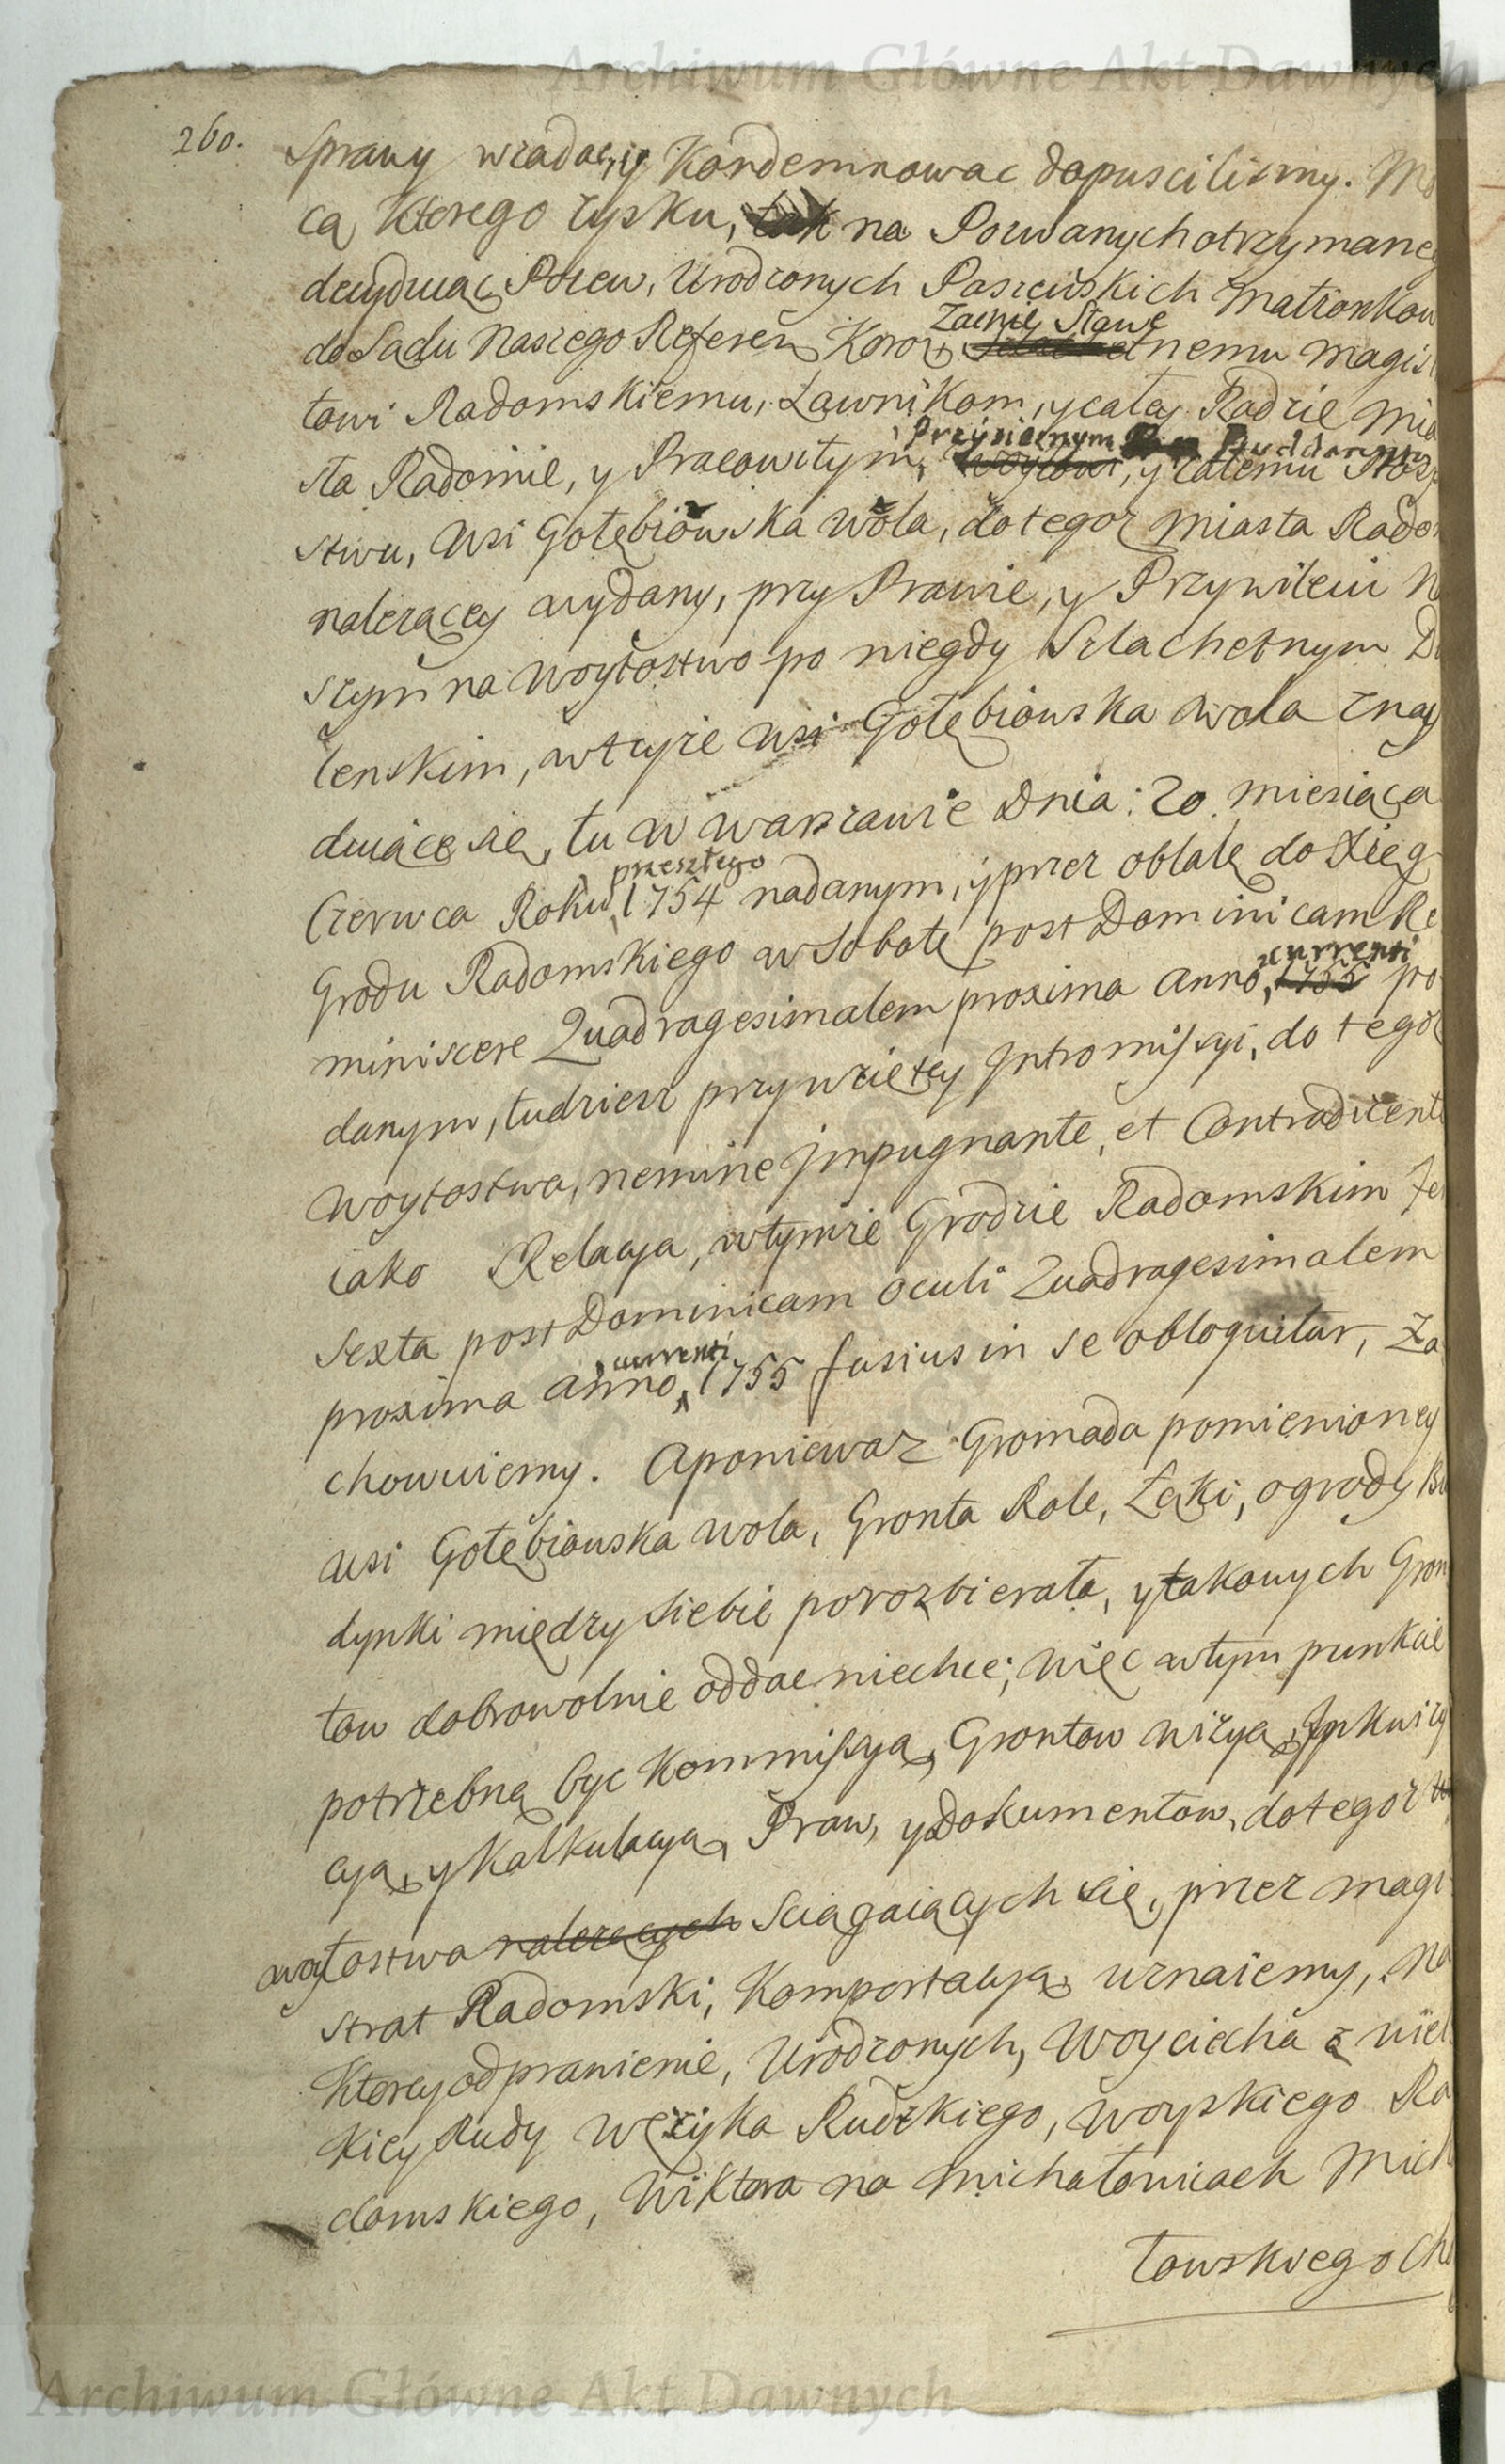 Archiwum Główne Akt Dawnych
260.
Sprawy wzadac, y Kondemnowac dopuscilismy. Mo
cą ktorego zysku, tak na Pozwanych otrzymane
decyduiąc Pozew, Urodzonych Paszewskich Małżonkow
Zacnie Sławe
do Sadu Naszego Referen Koron tnemu Magist
towi Radomskiemu, Ławnikom, y całey Radzie Mia
Przysiężnym Poddanym
sta Radomie, y Pracowitym, woytowi, y całemu Posp
stwu, wsi Gołębiowska Wola, do tegoz Miasta Rado
nalezącey wydany, przy Prawie, y Przywileiu N
szym na Woytostwo po niegdy Szlachetnym D
lenskim, w teyże wsi Gołębiowska Wola znay
duiące się, tu w Warszawie Dnia: 20. Miesiąca
przeszłego
Czerwca Roku 1754 nadanym, y przez oblatę do Xięg
Grodu Radomskiego w Sobotę post Dominicam Re
currenti
miniscere Quadragesimalem proxima Anno, 1755 po
danym, tudziesz przy wzietey Intromissyi, do tegoż
Woytostwa, nemine impugnante, et Contradicente
iako Relacya, w tymże Grodzie Radomskim Fe
Sexta post Dominicam Oculi Quadragesimalem
currenti
proxima Anno, 1755 fusius in se obloquitur, Za
chowuiemy. A poniewaz Gromada pomienioney
wsi Gołębiowska Wola, Gronta Role, Łąki, ogrody Bu
dynki między Siebie porozbierała, y takowych Gron
tow dobrowolnie oddac niechce; więc w tym punkcie
potrzebną byc Kommissyą, Grontow Wizyą, Inkwizy
cyą, y Kalkulacyą, Praw, y Dokumentow, do tegoż W
woytostwa nalezących Sciągaiących się, przez Magi
strat Radomski, Komportacyą uznaiemy, Na
Ktorey odprawienie, Urodzonych, Woyciecha z Wiel
Kiey Rudy Wężyka Rudzkiego, Woyskiego Ra
domskiego, Wiktora na Michałowicach Mich
łowskiego Ch
Archiwum Główne Akt Dawnych